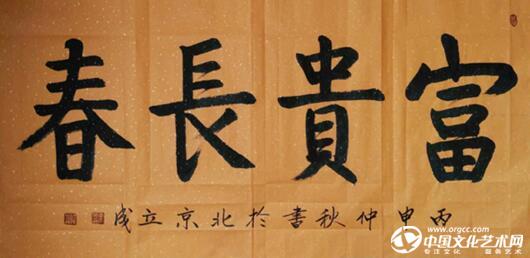 富貴長春
丙申仲秋書於北京立成
www.orgcc.com
中国文化艺术网
专注文化 服务艺术